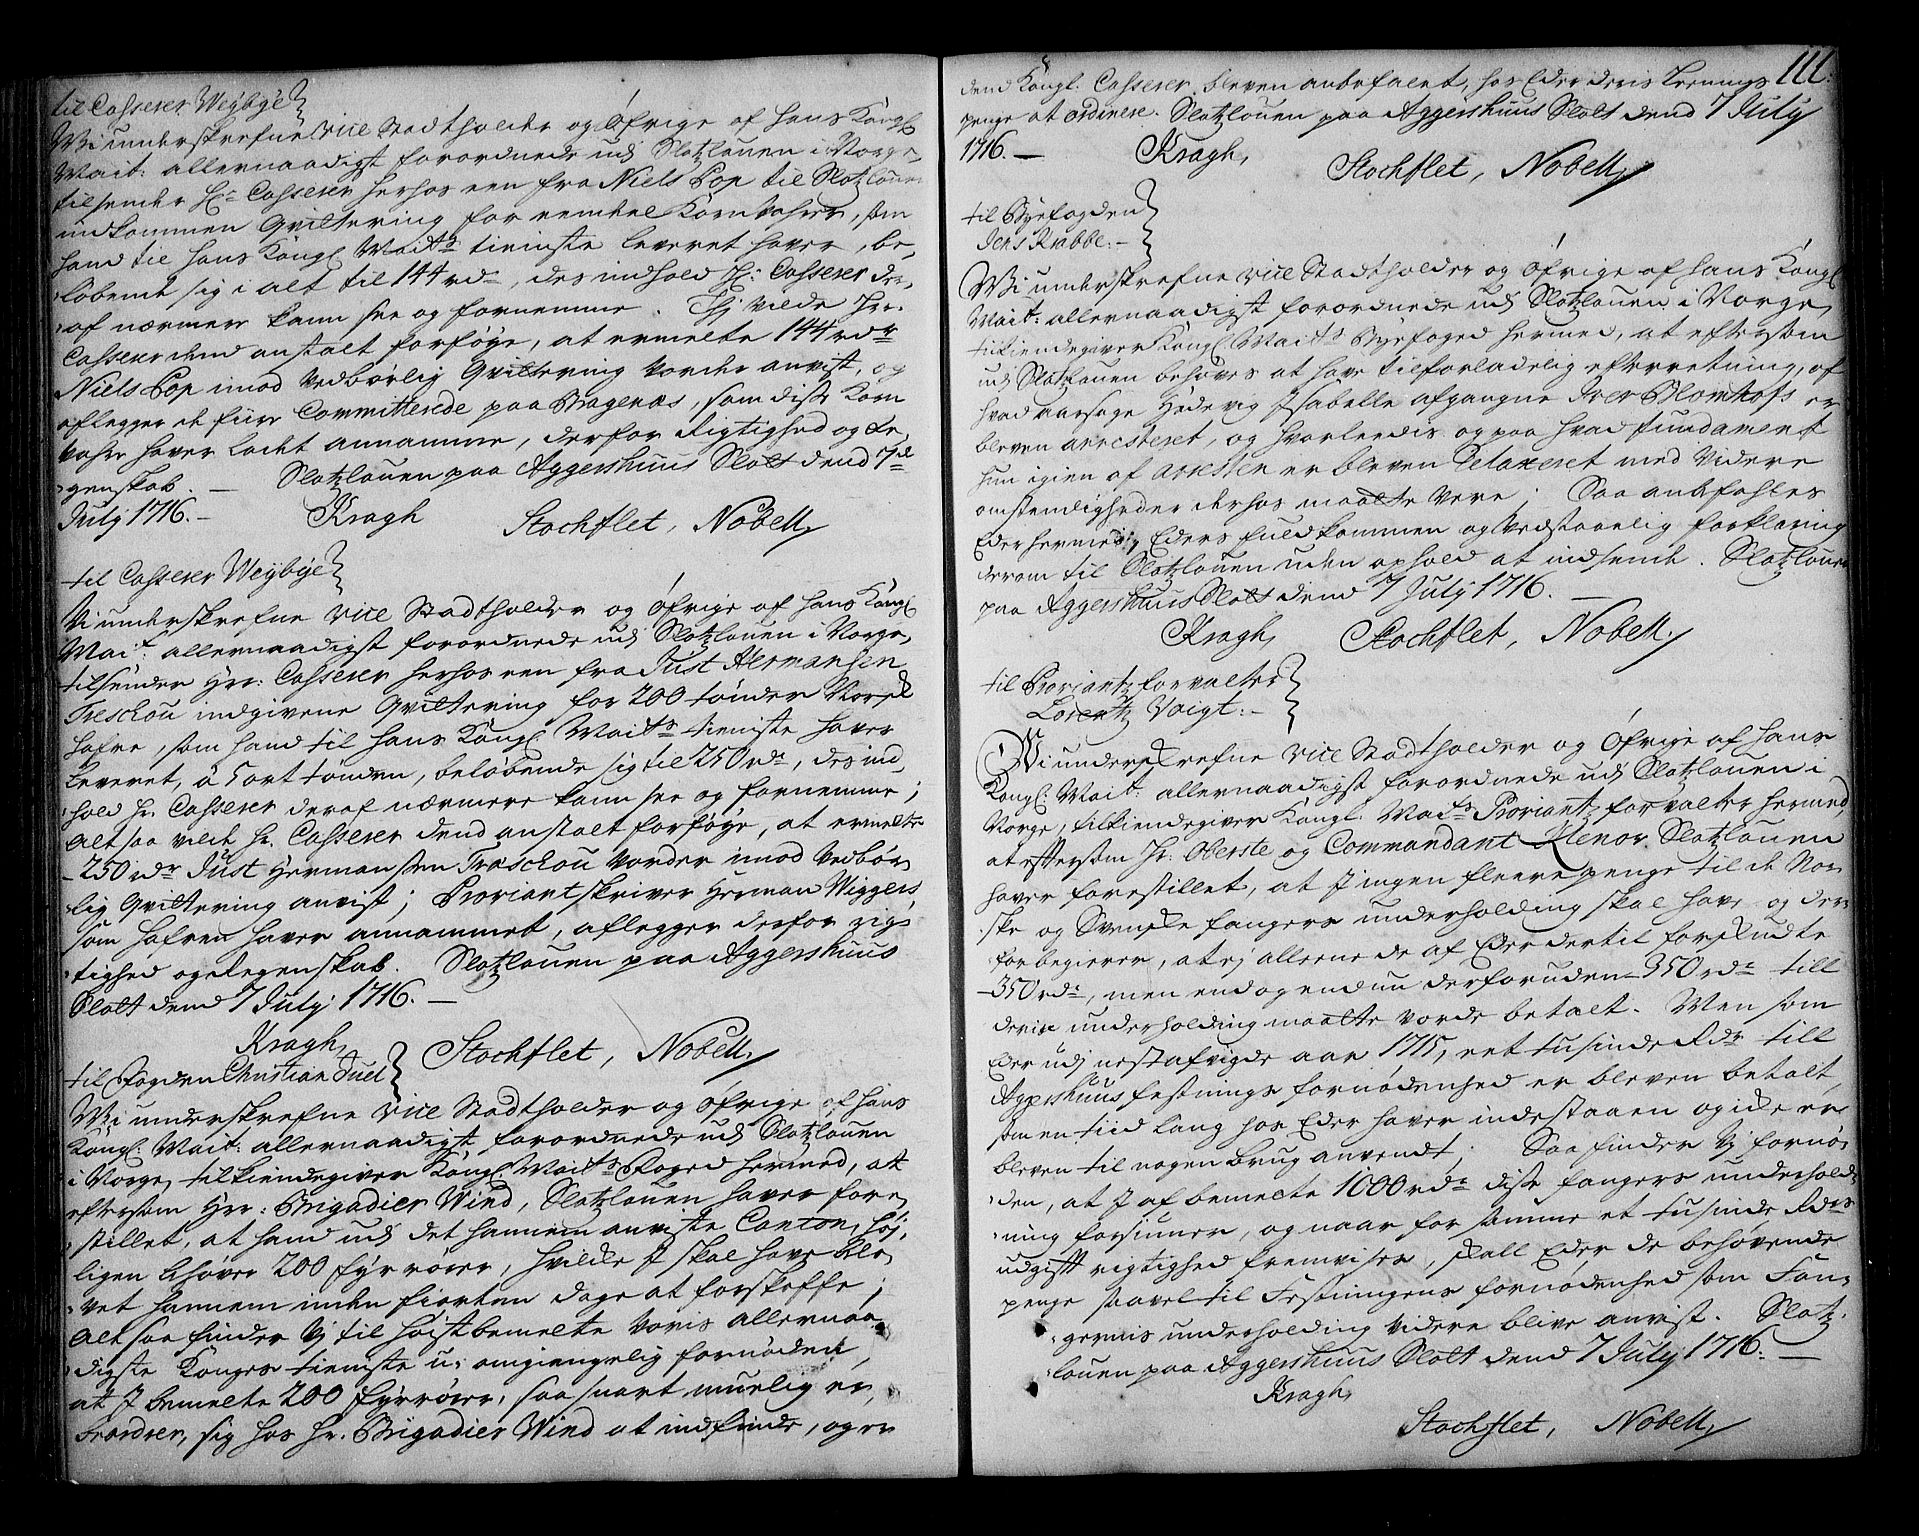 til Casserer Weÿbÿe
Wi underskrefne vice Stadtholder og Øfrige af Hans Kongl
Maitz allernaadigst forordnede udj Slotzlouen i Norge,
tilsender Hr Casserer herhos een fra Niels Pop til Slotzlouen
indkommen Qvittering for eendeel Kornvahre, som
hand til Hans Kongl Maitz tieniste leveret haver, be,
løbende sig i alt til 144 rdr, des indhold Hr: Casserer der,
af nærmere kand see og fornemme. Thj vilde Hr:
Casserer dend anstalt forføÿe, at ermelte 144 rdr
Niels Pop imod vedbørlig Qvittering vorder anvist, og
aflegger de fiire Committerede paa Bragenæs, som disse Korn
vahre haver ladet annamme, derfor Rigtighed og Re,
genskab. — Slotzlouen paa Aggershuus Slott dend 7de
Julÿ 1716. — Kragh Stochflet, Nobell,
til Casserer Weÿbÿe
Vi underskrefne vice Stadtholder og Øfrige af Hans Kongl
Mait: allernaadigst forordnede udj Slotzlouen i Norge,
tilsender Hrr: Casserer herhos een fra Just Hermansen
Treschou indgivene Qvittering for 200 tønder Norsk
Hafre, som hand til Hans Kongl: Maitz tieniste haver
leveret, à 5 ort tønden, beløbende sig til 250 rdr, des ind,
hold Hr. Casserer deraf nærmere kand see og fornemme;
Altsaa vilde Hr. Casserer dend anstalt forføÿe, at ermelte
250 rdr Just Hermansen Treschou vorder imod vedbør,
lig Qvittering anvist; Proviantskriver Herman Wiggers,
som hafren haver annammet, aflegger derfor rig,
tighed og Regenskab. Slotzlouen paa Aggershuus
Slott dend 7 Julÿ 1716. —
Kragh, Stochflet, Nobell,
til Fogden Christian Juel
Wi underskrefne vice Stadtholder og Øfrige af Hans
Kongl: Mait: allernaadigst forordnede udj Slotzlouen
i Norge, tilkiendegiver Kongl Maitz Foged hermed, at
eftersom Hrr: Brigadier Wind, Slotzlouen haver fore,
stillet, at hand udj det hannem anviste Canton, Høj,
ligen behøver 200 fÿrrører, hvilke I skal have ble,
vet hannem inden fiorten dage at forskaffe;
Altsaa finder Vj til Høistbemelte Voris allernaa,
digste Konges tieniste u-omgiengelig fornøden,
at I bemelte 200 fÿrrører, saa snart muelig er,
hos Hr. Brigadier Wind at indfinde, og er
111.
dend Kongl. Casserer bleven anbefalet, hos Eder deris Leenings
penge at ordinere. Slotzlouen paa Aggershuus Slott dend 7 Julÿ
1716. — Kragh, Stochflet, Nobell,
til Bÿefogden
Jens Krabbe. —
Wi underskrefne vice Stadtholder og Øfrige af Hans Kongl
Mait: allernaadigst forordnede udj Slotzlouen i Norge,
tilkiendegiver Kongl Maitz Bÿefoged hermed, at eftersom
udj Slotzlouen behøves at have tilforladelig efterretning, af
hvad aarsage Hedevig Isabelle afgangne Iver Blomhofs er
bleven arresteret, og hvorleedis og paa hvad fundament
hun igien af arresten er bleven relaxeret med videre
omstendigheder derhos maatte være; Saa anbefahles
Eder hermed, Eders fuldkommen og vedstaaelig forklaring
derom til Slotzlouen uden ophold at indsende. Slotzlouen
paa Aggershuus Slott dend 7 Julÿ 1716. —
Kragh, Stochflet, Nobell.
til Proviantz forvalter
Lorentz Voigt. —
Wi underskrefne vice Stadtholder og Øfrige af Hans
Kongl: Mait: allernaadigst forordnede udj Slotzlouen i
Norge, tilkiendegiver Kongl. Maitz Proviantz forvalter hermed,
at eftersom Hr. Oberste og Commandant Klenov Slotzlouen
haver forestillet, at I ingen fleere penge til de Nor
ske og Svenske fangers underholding skal have og der,
for begierer, at ej alleene de af Eder dertil forskudte
350 rdr, men end og endnu derforuden 350 rdr till
deris underholding maatte vorde betalt. Men som
Eder udj nestafvigde aar 1715, eet tusinde Rdr till
Aggershuus festnings fornødenhed er bleven betalt,
som en tiid lang hos Eder haver indestaaen og icke er
bleven til nogen brug anvendt; Saa finder Vj fornø,
den, at I af bemelte 1000 rdr disse fangers underhold,
ning forsiuner, og naar for samme et tusinde Rdrs
udgift rigtighed fremvises, skall Eder de behøvende
penge saavel til Festningens fornødenhed som Fan,
gernis underholding videre blive anvist. Slotz,
louen paa Aggershuus Slott dend 7 Julÿ 1716. —
Kragh,
Stochflet, Nobell,